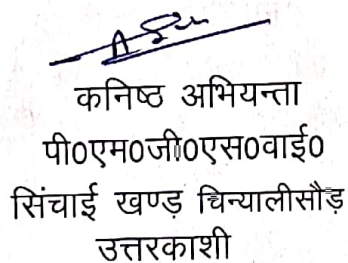 कनिष्ठ अभियन्ता
पी0एम0जी0एस0वाई0
सिंचाई खण्ड़ चिन्यालीसौड़
उत्तरकाशी